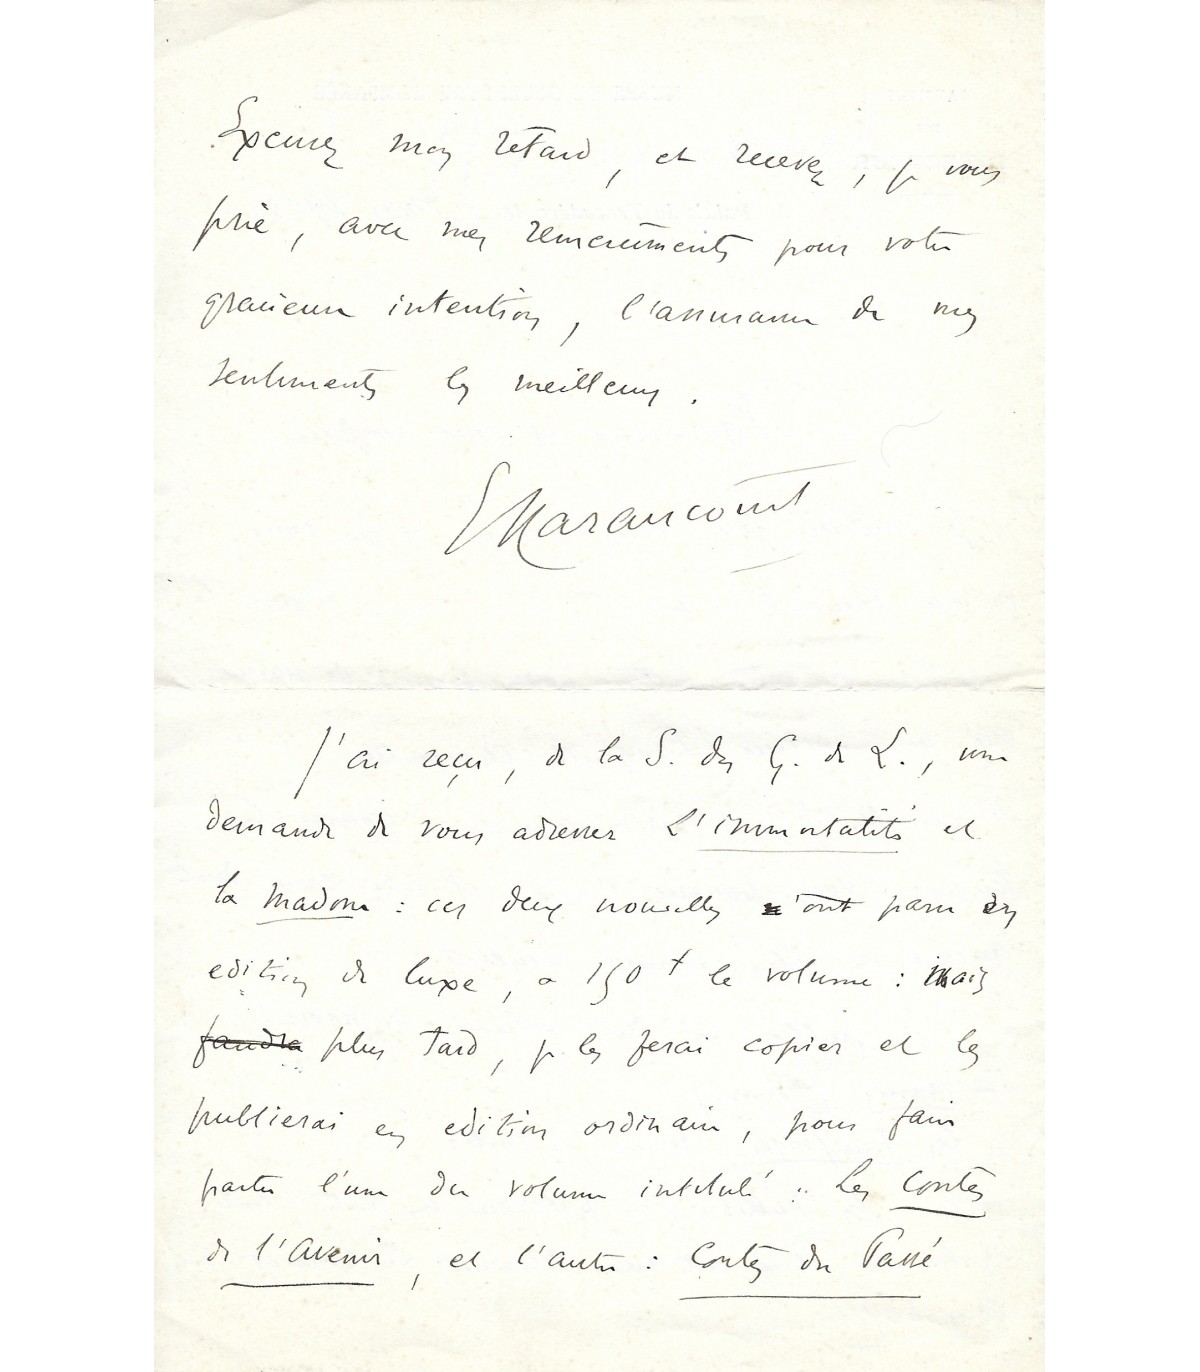 Excusez mon retard, et recevez, je vous
prie, avec mes remerciements pour votre
gracieuse intention, l'assurance de mes
sentiments les meilleurs.
EHaraucourt
J'ai reçu, de la S. des G. de L., une
demande de vous adresser L'immortalité et
la Madone : ces deux nouvelles n'ont paru qu'en
edition de luxe, à 150 f le volume : mais
faudra plus tard, je les ferai copier et les
publierai en edition ordinaire, pour faire
partie l'une du volume intitulé : Les Contes
de l'Avenir, et l'autre : Contes du Passé